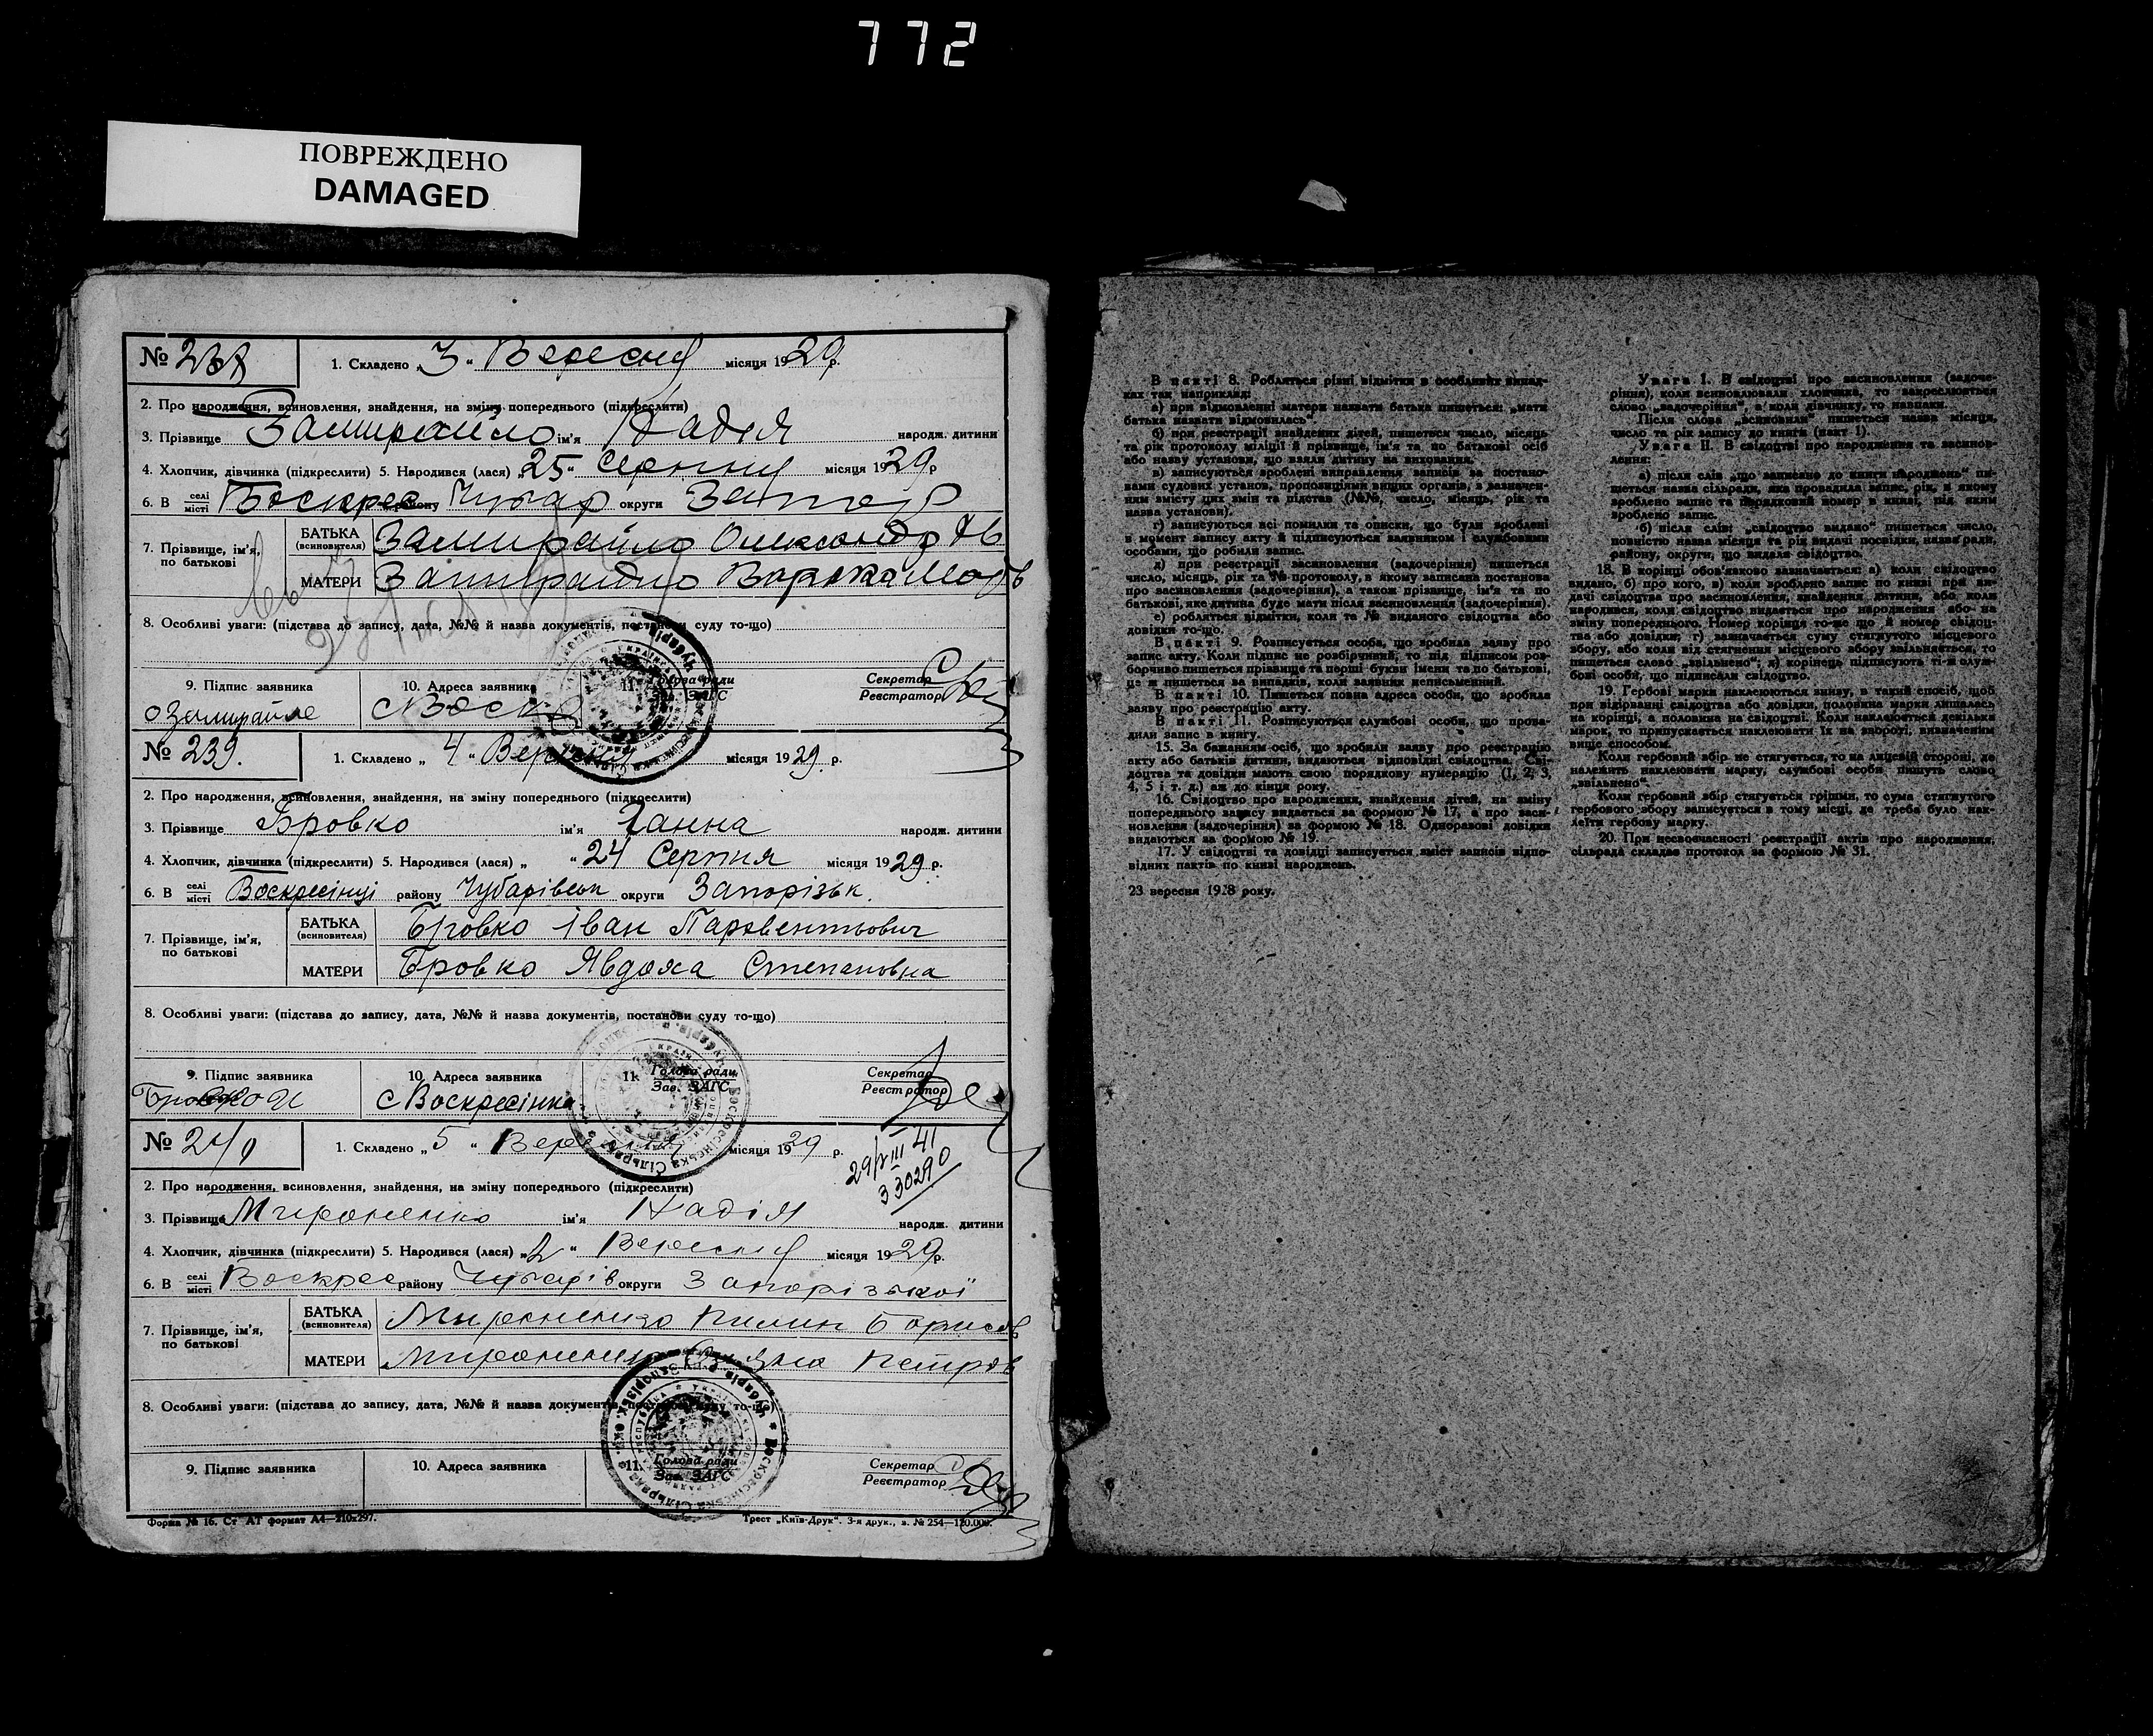 772
ПОВРЕЖДЕНО
DAMAGED
№ 238
1. Складено „3“ Вересня місяця 1929 р.
2. Про народження, всиновлення, знайдення, на зміну попереднього (підкреслити)
3. Прізвище Замирайло ім'я Надія народж. дитини
4. Хлопчик, дівчинка (підкреслити) 5. Народився (лася) „25“ Серпня місяця 1929 р.
6. В селі/місті Воскрес району Чубар округи
7. Прізвище, ім'я, по батькові
БАТЬКА (всиновителя) Замирайло Олександр
МАТЕРИ Замирайло
8. Особливі уваги: (підстава до запису, дата, №№ й назва документів, постанови суду то-що)
9. Підпис заявника
10. Адреса заявника
11. Голова ради
Зав. ЗАГС
Секретар
Реєстратор
О Замирайло
№ 239.
1. Складено „4“ Вересня місяця 1929 р.
2. Про народження, всиновлення, знайдення, на зміну попереднього (підкреслити)
3. Прізвище Бровко ім'я Ганна народж. дитини
4. Хлопчик, дівчинка (підкреслити) 5. Народився (лася) „ “ 24 Серпня місяця 1929 р.
6. В селі/місті Воскресінці району Чубарівськ округи Запорізьк.
7. Прізвище, ім'я, по батькові
БАТЬКА (всиновителя) Бровко Іван Парвентьович
МАТЕРИ Бровко Явдоха Степановна
8. Особливі уваги: (підстава до запису, дата, №№ й назва документів, постанови суду то-що)
9. Підпис заявника
10. Адреса заявника
11. Голова ради
Зав. ЗАГС
Секретар
Реєстратор
Бровко И
с Воскресінка
№ 240
1. Складено „5“ Вересня місяця 1929 р.
29/VIII 41
330290
2. Про народження, всиновлення, знайдення, на зміну попереднього (підкреслити)
3. Прізвище Мироненко ім'я Надія народж. дитини
4. Хлопчик, дівчинка (підкреслити) 5. Народився (лася) „2“ Вересня місяця 1929 р.
6. В селі/місті Воскрес району Чубарів округи Запорізької
7. Прізвище, ім'я, по батькові
БАТЬКА (всиновителя) Мироненко Пилип Борисов
МАТЕРИ Мироненко Петров
8. Особливі уваги: (підстава до запису, дата, №№ й назва документів, постанови суду то-що)
9. Підпис заявника
10. Адреса заявника
11. Голова ради
Зав. ЗАГС
Секретар
Реєстратор
Форма № 16. Ст АТ формат А4—210х297.
Трест „Київ-Друк“. 3-я друк., з. № 254—120.000.
В пакті 8. Робляться різні відмітки в особливих випад-
ках так наприклад:
а) при відмовленні матери назвати батька пишеться: „мати
батька назвати відмовилась“
б) при реєстрації знайдених дітей, пишеться число, місяць
та рік протоколу міліції й прізвище, ім'я та по батькові осіб
або назву установи, що взяли дитину на виховання.
в) записуються зроблені виправлення записів за постано-
вами судових установ, пропозиціями вищих органів, з зазначен-
ням змісту цих змін та підстав (№№, число, місяць, рік та
назва установи).
г) записуються всі помилки та описки, що були зроблені
в момент запису акту й підписуються заявником і службовими
особами, що робили запис.
д) при реєстрації засиновлення (задочеріння) пишеться
число, місяць, рік та № протоколу, в якому записана постанова
про засиновлення (задочеріння), а також прізвище, ім'я та по
батькові, яке дитина буде мати після засиновлення (задочеріння).
е) робляться відмітки, коли та № виданого свідоцтва або
довідки то-що.
В пакті 9. Розписується особа, що зробила заяву про
запис акту. Коли підпис не розбірчивий, то під підписом роз-
бірчиво пишеться прізвище та перші букви імени та по батькові,
це ж пишеться за випадків, коли заявник неписьменний.
В пакті 10. Пишеться повна адреса особи, що зробила
заяву про реєстрацію акту.
В пакті 11. Розписуються службові особи, що прова-
дили запис в книгу.
15. За бажанням осіб, що зробили заяву про реєстрацію
акту або батьків дитини, видаються відповідні свідоцтва. Сві-
доцтва та довідки мають свою порядкову нумерацію (1, 2, 3,
4, 5 і т. д.) аж до кінця року.
16. Свідоцтво про народження, знайдення дітей, на зміну
попереднього запису видається за формою № 17, а про заси-
новлення (задочеріння) за формою № 18. Одноразові довідки
видаються за формою № 19.
17. У свідоцтві та довідці записується зміст записів відпо-
відних пактів по книзі народжень.
23 вересня 1928 року.
Увага I. В свідоцтві про засиновлення (задоче-
ріння), коли всиновлювали хлопчика, то закреслюється
слово „задочеріння“, а коли дівчинку, то навпаки.
Після слова „всиновили“ пишеться назва місяця,
число та рік запису до книги (пакт 1).
Увага II. В свідоцтві про народження та засинов-
лення:
а) після слів „що записано до книги народжень“ пи-
шеться назва сільради, яка провадила запис, рік, в якому
зроблено запис та порядковий номер в книзі, під яким
зроблено запис.
б) після слів: „свідоцтво видано“ пишеться число,
повністю назва місяця та рік видачі посвідки, назва ради,
району, округи, що видала свідоцтво.
18. В корінці обов'язково зазначається: а) коли свідоцтво
видано, б) про кого, в) коли зроблено запис по книзі при ви-
дачі свідоцтва про засиновлення, знайдення дитини, або коли
народився, коли свідоцтво видається про народження або на
зміну попереднього. Номер корінця то-же що й номер свідоц-
тва або довідки; г) зазначається суму стягнутого місцевого
збору, або коли від стягнення місцевого збору звільняється, то
пишеться слово „звільнено“; д) корінець підписують ті-ж служ-
бові особи, що підписали свідоцтво.
19. Гербові марки наклеюються внизу, в такий спосіб, щоб
при відірванні свідоцтва або довідки, половина марки лишалась
на корінці, а половина на свідоцтві. Коли наклеюється декілька
марок, то припускається наклеювати їх на звороті, визначеним
вище способом.
Коли гербовий збір не стягується, то на лицевій стороні, де
належить наклеювати марку, службові особи пишуть слово
„звільнено“.
Коли гербовий збір стягується грішми, то сума стягнутого
гербового збору записується в тому місці, де треба було нак-
леїти гербову марку.
20. При несвоєчасності реєстрації актів про народження,
сільрада складає протокол за формою № 31.